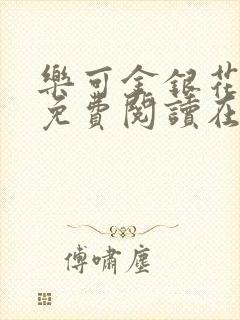 樂可金銀花
免費閱讀在
傅嘯塵